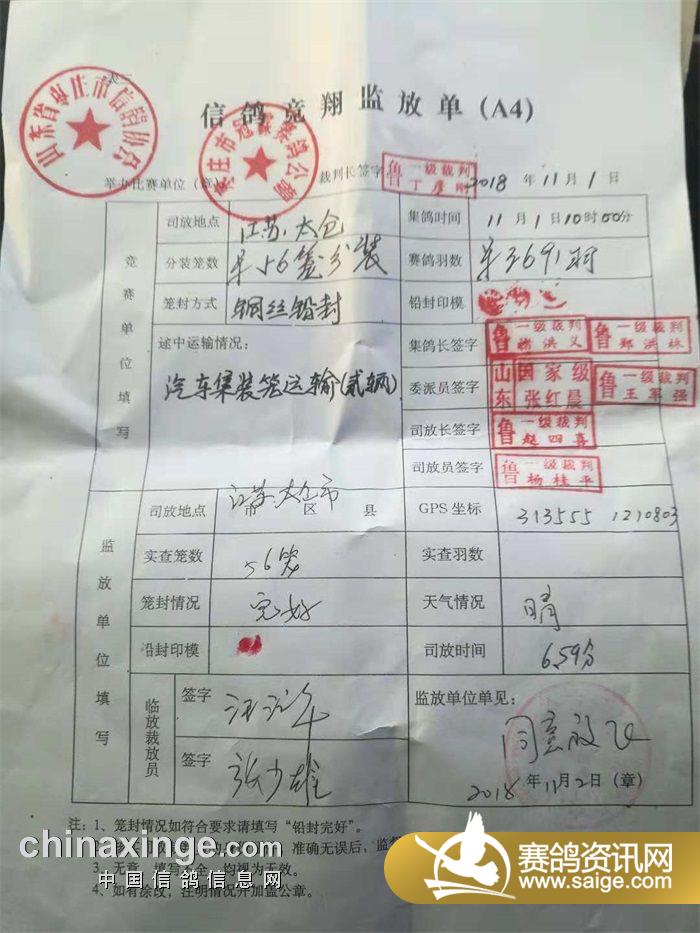 信鸽竞翔监放单(A4)
山东省枣庄市信鸽协会
枣庄市冠霖赛鸽公棚
举办比赛单位(章)
裁判长签字
鲁 一级裁判 丁彦刚
2018年11月1日
竞赛单位填写
司放地点 江苏.太仓
集鸽时间 11月1日10时00分
分装笼数 单56笼分装
赛鸽羽数 单3691羽
笼封方式 钢丝铅封
铅封印模
途中运输情况:
汽车集装笼运输(贰辆)
集鸽长签字 鲁 一级裁判 洪义 鲁 一级裁判 郑洪林
委派员签字 山东 国家级 张红晨 鲁 一级裁判 王军强
司放长签字 鲁 一级裁判 赵四喜
司放员签字 鲁 一级裁判 杨桂平
监放单位填写
司放地点 江苏.太仓市 市 区 县
GPS坐标 313555 1210803
实查笼数 56笼
实查羽数
笼封情况 完好
天气情况 晴
铅封印模
司放时间 659分
临放裁放员
签字
签字 张少雄
监放单位单见:
同意放飞
2018年11月2日(章)
注:1、笼封情况如符合要求请填写“铅封完好”。
准确无误后,监
3、无章、填写不全,均视为无效。
4、如有涂改,注明情况并加盖公章。
chinaxinge.com
中国信鸽信息网
赛鸽资讯网
www.saige.com